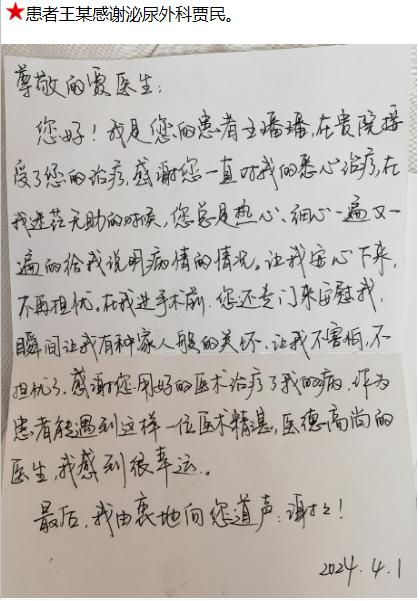 ★患者王某感谢泌尿外科贾民。
尊敬的贾医生：
您好！我是您的患者王璠璠，在贵院接
受了您的治疗，感谢您一直对我的悉心治疗，在
我迷茫无助的时候，您总是热心、细心一遍又一
遍的给我说明病情的情况。让我安心下来，
不再担忧。在我进手术前，您还专门来安慰我，
瞬间让我有种家人般的关怀，让我不害怕，不
担忧了。感谢您用好的医术治疗了我的病，作为
患者能遇到这样一位医术精湛，医德高尚的
医生，我感到很幸运。
最后，我由衷地向您道声：谢谢！
2024.4.1